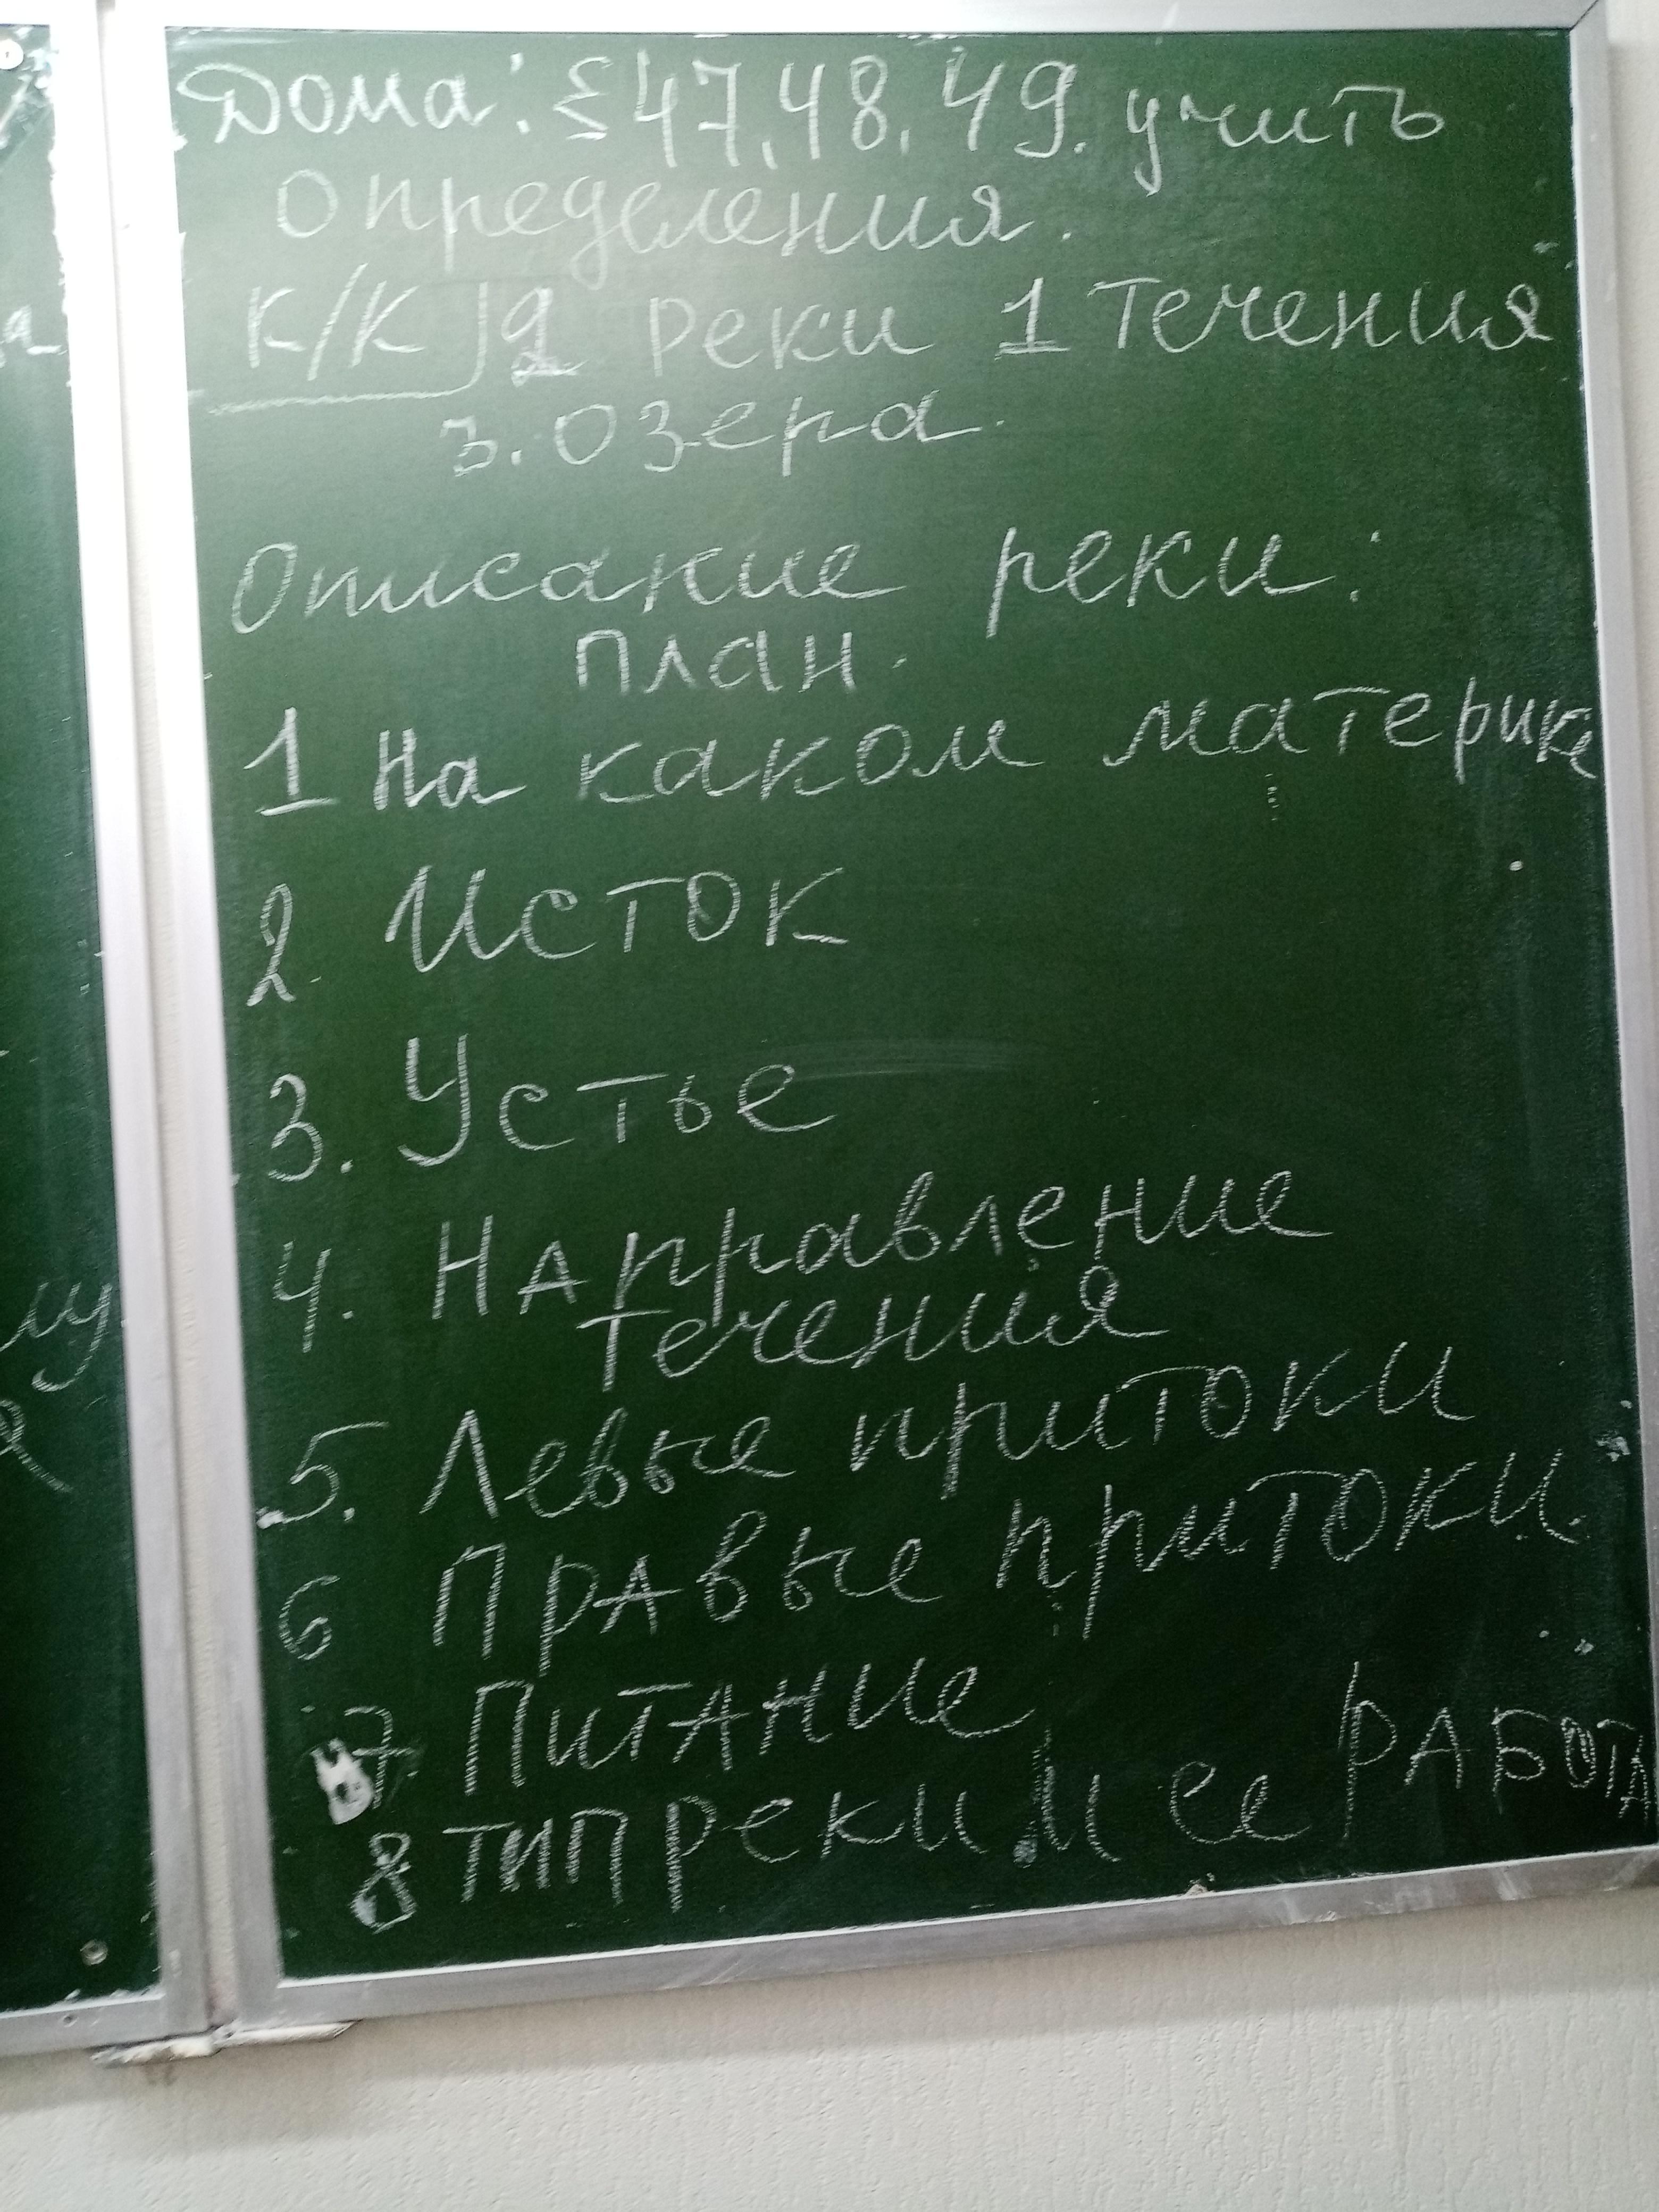 Дома: § 47, 48, 49. учить
определения.
К/К 2 реки 1 течения
3. озера.
Описание реки:
план.
1 На каком материке
2. Исток
3. Устье
4. Направление
течения
5. Левые притоки
6 Правые притоки
7 Питание
8 тип реки. и ее работа
му